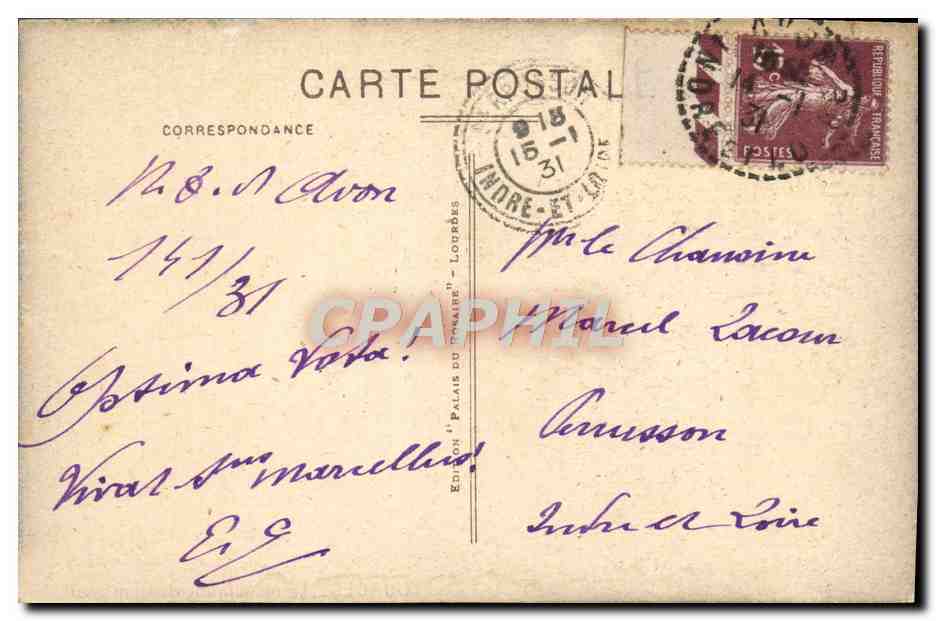 CARTE POSTALE
CORRESPONDANCE
Avon
141/31
Optima Vota!
Vivat Stus Marcellus!
E. G
EDITION "PALAIS DU ROSAIRE" - LOURDES
9 18
15 -1
31
INDRE-ET-LOIRE
15c
REPUBLIQUE FRANCAISE
POSTES
le Chanoine
Marcel Lacour
Perrusson
Indre et Loire
CPAPHIL